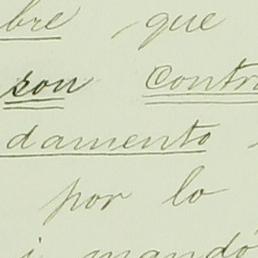 bre que
son contr
damento
por lo
i mandó